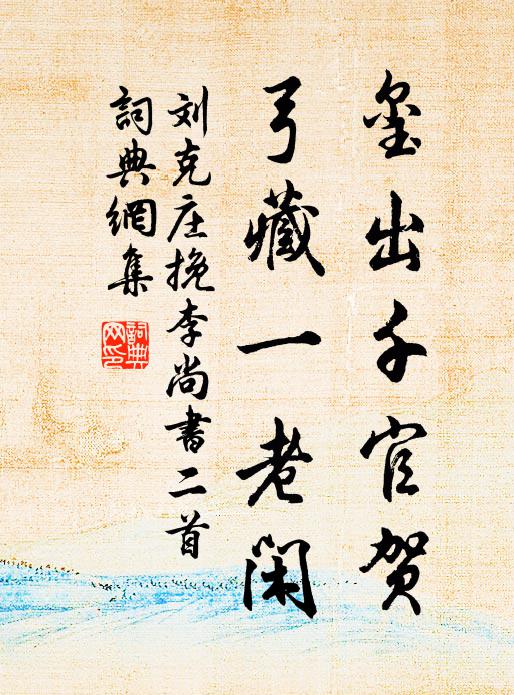 玺出千官贺
弓藏一老闲
刘克庄挽李尚书二首
詞典網集
詞典网印